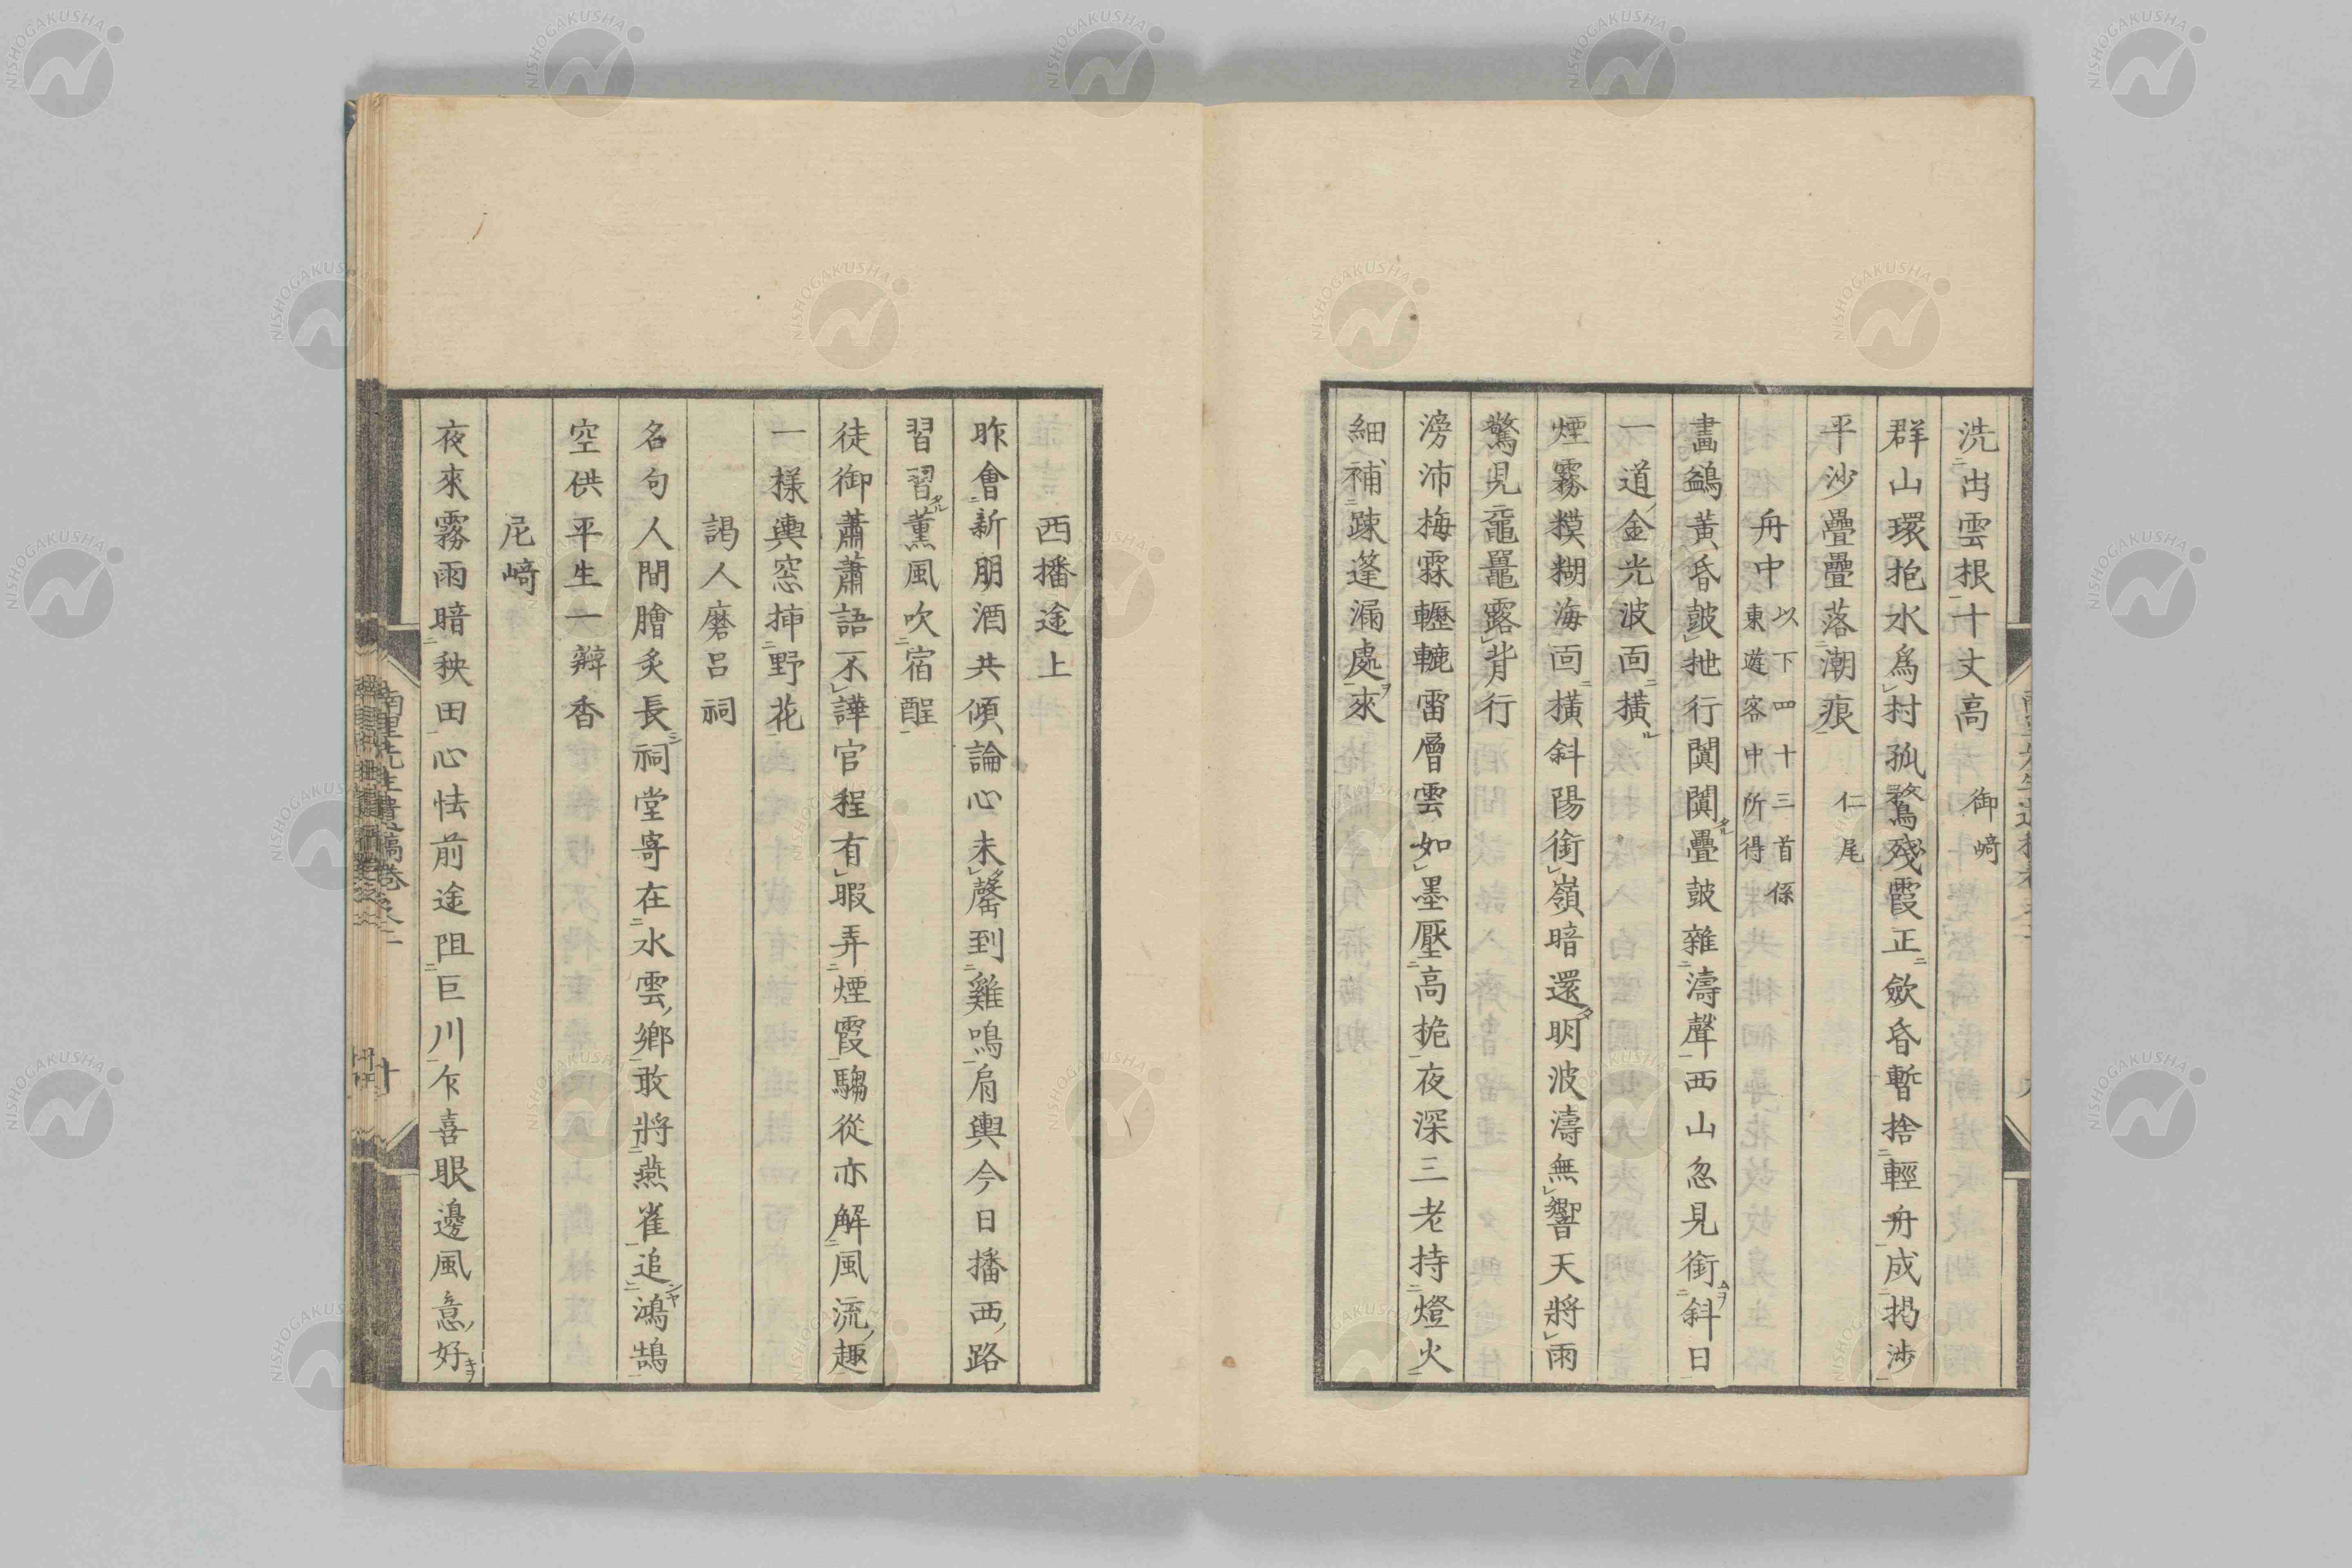 洗出雲根十丈高　御﨑
群山環抱水為村孤鶩殘霞正斂昏暫捨輕舟成揭涉
平沙疊疊落潮痕　仁尾
舟中　以下四十三首係東遊客中所得
畵鷁黃昏皷枻行闐闐疊皷雜濤聲西山忽見銜斜日
一道金光波面橫
煙霧糢糊海面橫斜陽銜嶺暗還明波濤無響天將雨
驚見黿鼉露背行
滂沛梅霖轣轆雷層雲如墨壓高桅夜深三老持燈火
細補疎篷漏處來
西播途上
昨會新朋酒共傾論心未罄到雞鳴肩輿今日播西路
習習薰風吹宿酲
徒御蕭蕭語不譁官程有暇弄煙霞騶從亦解風流趣
一樣輿窓挿野花
謁人磨呂祠
名句人間膾炙長祠堂寄在水雲鄉敢將燕雀追鴻鵠
空供平生一瓣香
尼﨑
夜來霧雨暗秧田心怯前途阻巨川乍喜眼邊風意好
南里先生遺稿卷之二
十
NISHOGAKUSHA